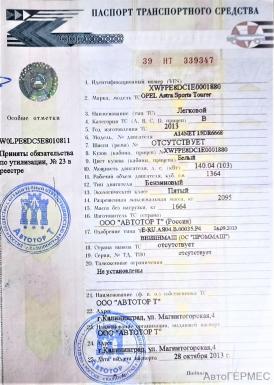 ПАСПОРТ ТРАНСПОРТНОГО СРЕДСТВА
39 НТ 339347
Особые отметки
W0LPE8DC5E8010811
Приняты обязательства
по утилизации, № 23 в
реестре
1. Идентификационный номер (VIN) XWFPE8DC1E0001880
2. Марка, модель ТС OPEL Astra Sports Tourer
3. Наименование (тип ТС) Легковой
4. Категория ТС (A, B, C, D, прицеп) B
5. Год изготовления ТС 2013
6. Модель, № двигателя A14NET
7. Шасси (рама) № ОТСУТСТВУЕТ
8. Кузов (кабина, прицеп) № XWFPE8DC1E0001880
9. Цвет кузова (кабины, прицепа) Белый
10. Мощность двигателя, л. с. (кВт) 140.04 (103)
11. Рабочий объем двигателя, куб. см 1364
12. Тип двигателя Бензиновый
13. Экологический класс Пятый
14. Разрешенная максимальная масса, кг 2095
15. Масса без нагрузки, кг 1664
16. Изготовитель ТС (страна)
ООО "АВТОТОР Т" (Россия)
17. Одобрение типа
18. Страна вывоза ТС отсутствует
19. Серия, № ТД, ТПО отсутствует
20. Таможенные ограничения
Не установлены
21. Наименование (ф. и. о.) собственника ТС
ООО "АВТОТОР Т"
22. Адрес
г.Калининград, ул. Магнитогорская,4
23. Наименование организации, выдавшей паспорт
ООО "АВТОТОР Т"
24. Адрес
г.Калининград, ул. Магнитогорская,4
25. Дата выдачи паспорта 28 октября 2013 г.
АВТОТОР Т
АвтоГЕРМЕС